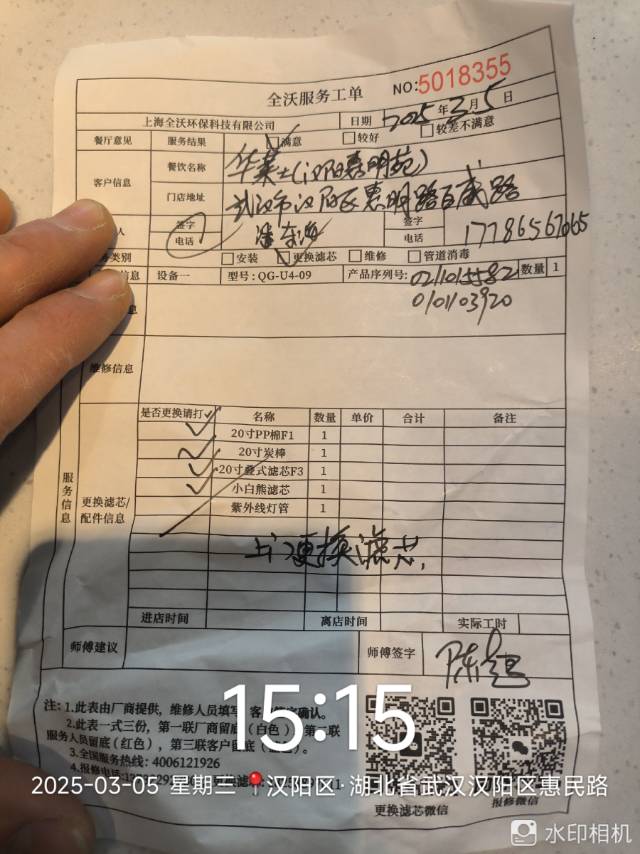 全沃服务工单
NO:5018355
上海全沃环保科技有限公司 日期 2025年3月5日
餐厅意见 服务结果 满意 较好 较差不满意
客户信息 餐饮名称 华莱士(汉阳惠明苑)
门店地址 武汉市汉阳区惠明路百威路
人 签字 签字
电话 电话 17786567065
类别 安装 更换滤芯 维修 管道消毒
信息 设备一 型号:QG-U4-09 产品序列号: 数量 1
0101103920
息
维修信息
服务信息
更换滤芯/配件信息
是否更换请打✓ 名称 数量 单价 合计 备注
✓ 20寸PP棉F1 1
✓ 20寸炭棒 1
✓ 20寸叠式滤芯F3 1
✓ 小白熊滤芯 1
紫外线灯管 1
上门更换滤芯.
进店时间 离店时间 实际工时
师傅建议 师傅签字
注:1.此表由厂商提供,维修人员填写 客 确认。
2.此表一式三份,第一联厂商留底(白色) 第二联
服务人员留底(红色),第三联客户留底
3.全国服务热线:4006121926
4.报修电话
更换滤芯微信 报修微信
15:15
2025-03-05 星期三 汉阳区·湖北省武汉汉阳区惠民路
水印相机